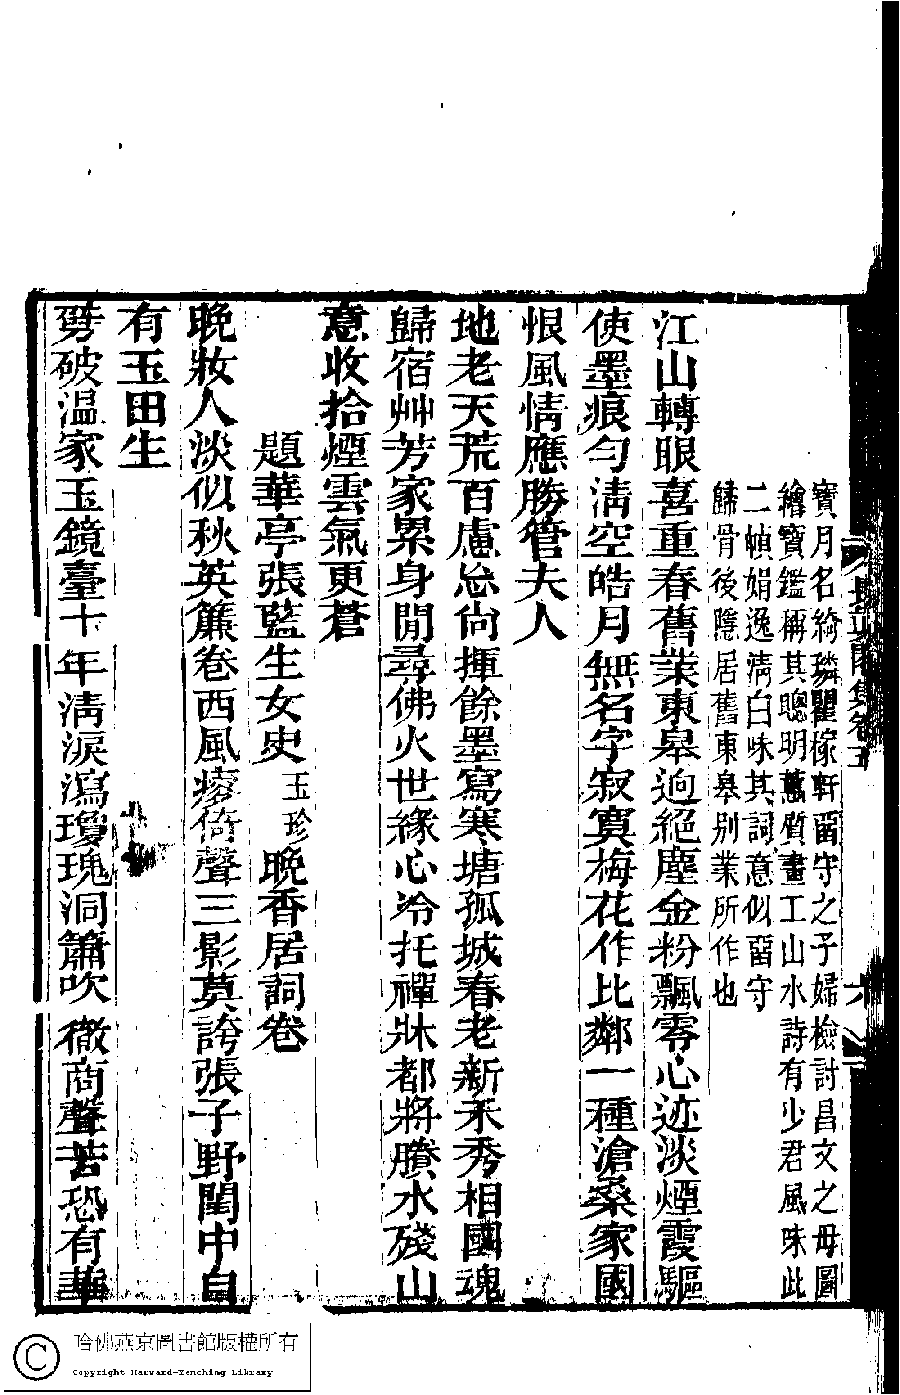 寶月名綺璘瞿稼軒留守之子婦檢討昌文之母圖
繪寶鑑稱其聰明蕙質畫工山水詩有少君風味此
二幀娟逸淸白味其詞意似留守
歸骨後隱居舊東皋别業所作也
江山轉眼喜重春舊業東皋逈絕塵金粉飄零心迹淡煙霞驅
使墨痕勻淸空皓月無名字寂寞梅花作比鄰一種滄桑家國
恨風情應勝管夫人
地老天荒百慮忘尙揮餘墨寫寒塘孤城春老新禾秀相國魂
歸宿艸芳家累身閒尋佛火世緣心冷托禪牀都將賸水殘山
意收拾煙雲氣更蒼
題華亭張監生女史玉珍晚香居詞卷
晚妝人淡似秋英簾卷西風瘦倚聲三影莫誇張子野閨中自
有玉田生
劈破溫家玉鏡臺十年淸淚瀉瓊瑰洞簫吹徹商聲苦恐有華
集卷五
六
哈佛燕京圖書館版權所有
Copyright Harvard-Yenching Library